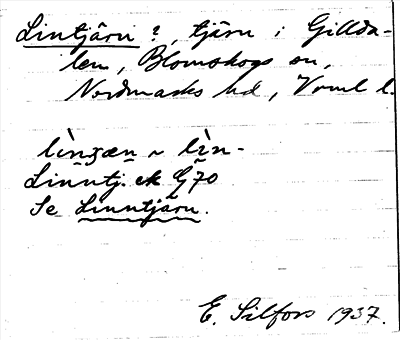 Lintjärn ?, tjärn i Gillda-
len, Blomskogs sn,
Nordmarks hd, Vrml l.
lìnʒæn ~ lìn-
Linntj. ek G70
Se Linntjärn.
E. Silfors 1937.